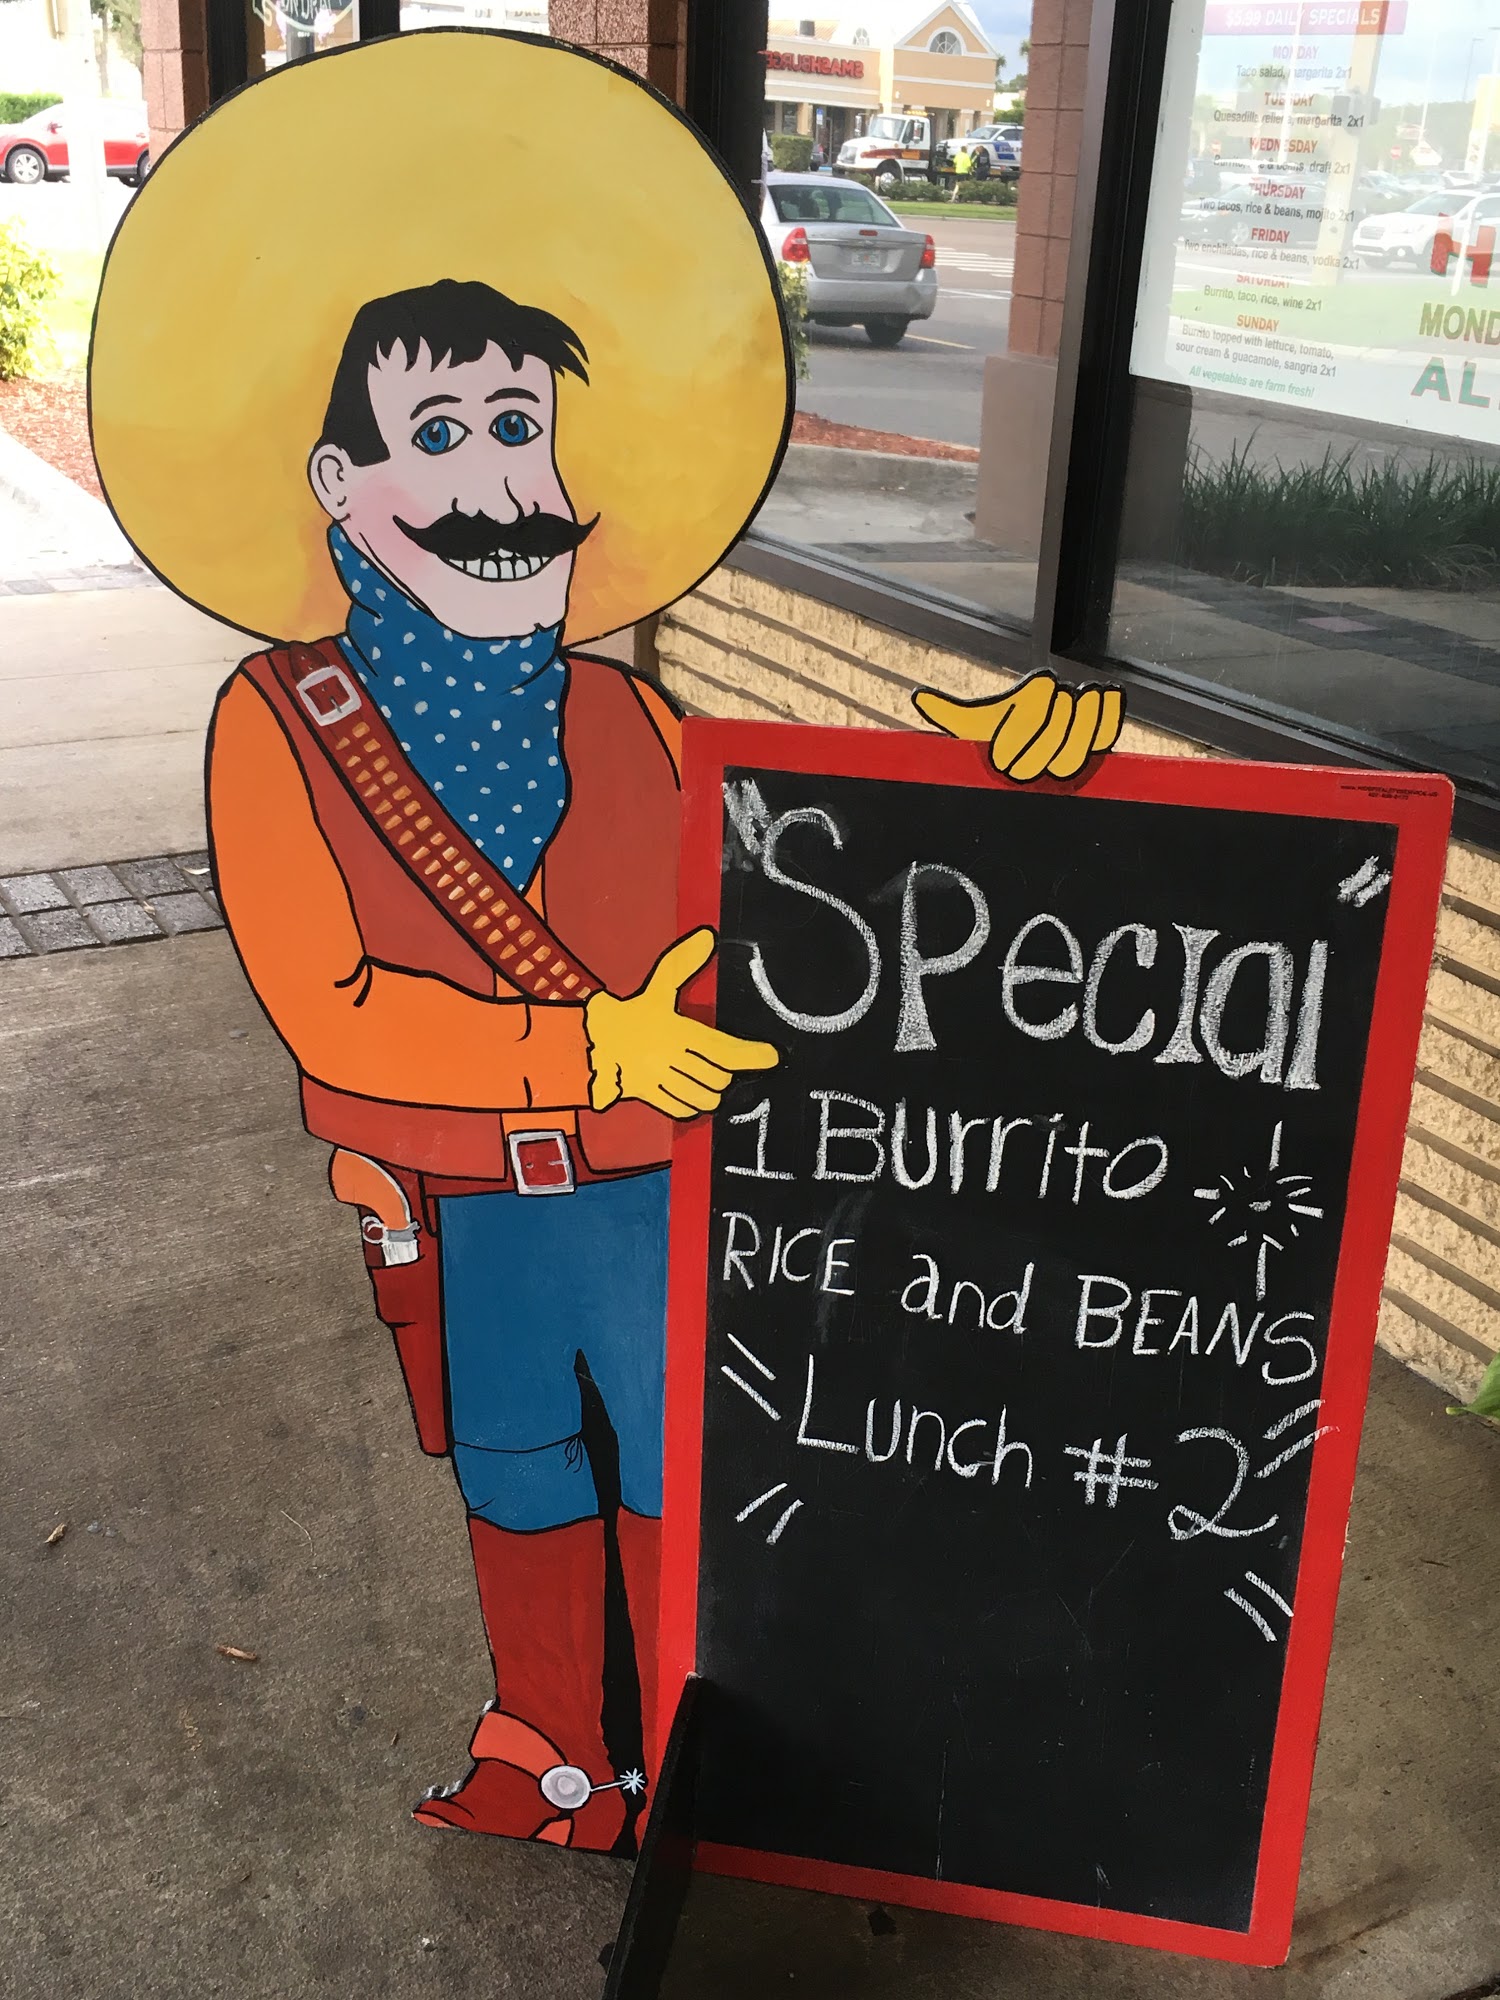 "Special"
1 Burrito
RICE and BEANS
Lunch #2
$5.99 DAILY SPECIALS
MONDAY
Taco salad, margarita 2x1
TUESDAY
Quesadilla rellena, margarita 2x1
WEDNESDAY
Burrito, rice & beans, draft 2x1
THURSDAY
Two tacos, rice & beans, mojito 2x1
FRIDAY
Two enchiladas, rice & beans, vodka 2x1
SATURDAY
Burrito, taco, rice, wine 2x1
SUNDAY
Burrito topped with lettuce, tomato,
sour cream & guacamole, sangria 2x1
All vegetables are farm fresh!
H
MOND
AL
SMASHBURGER